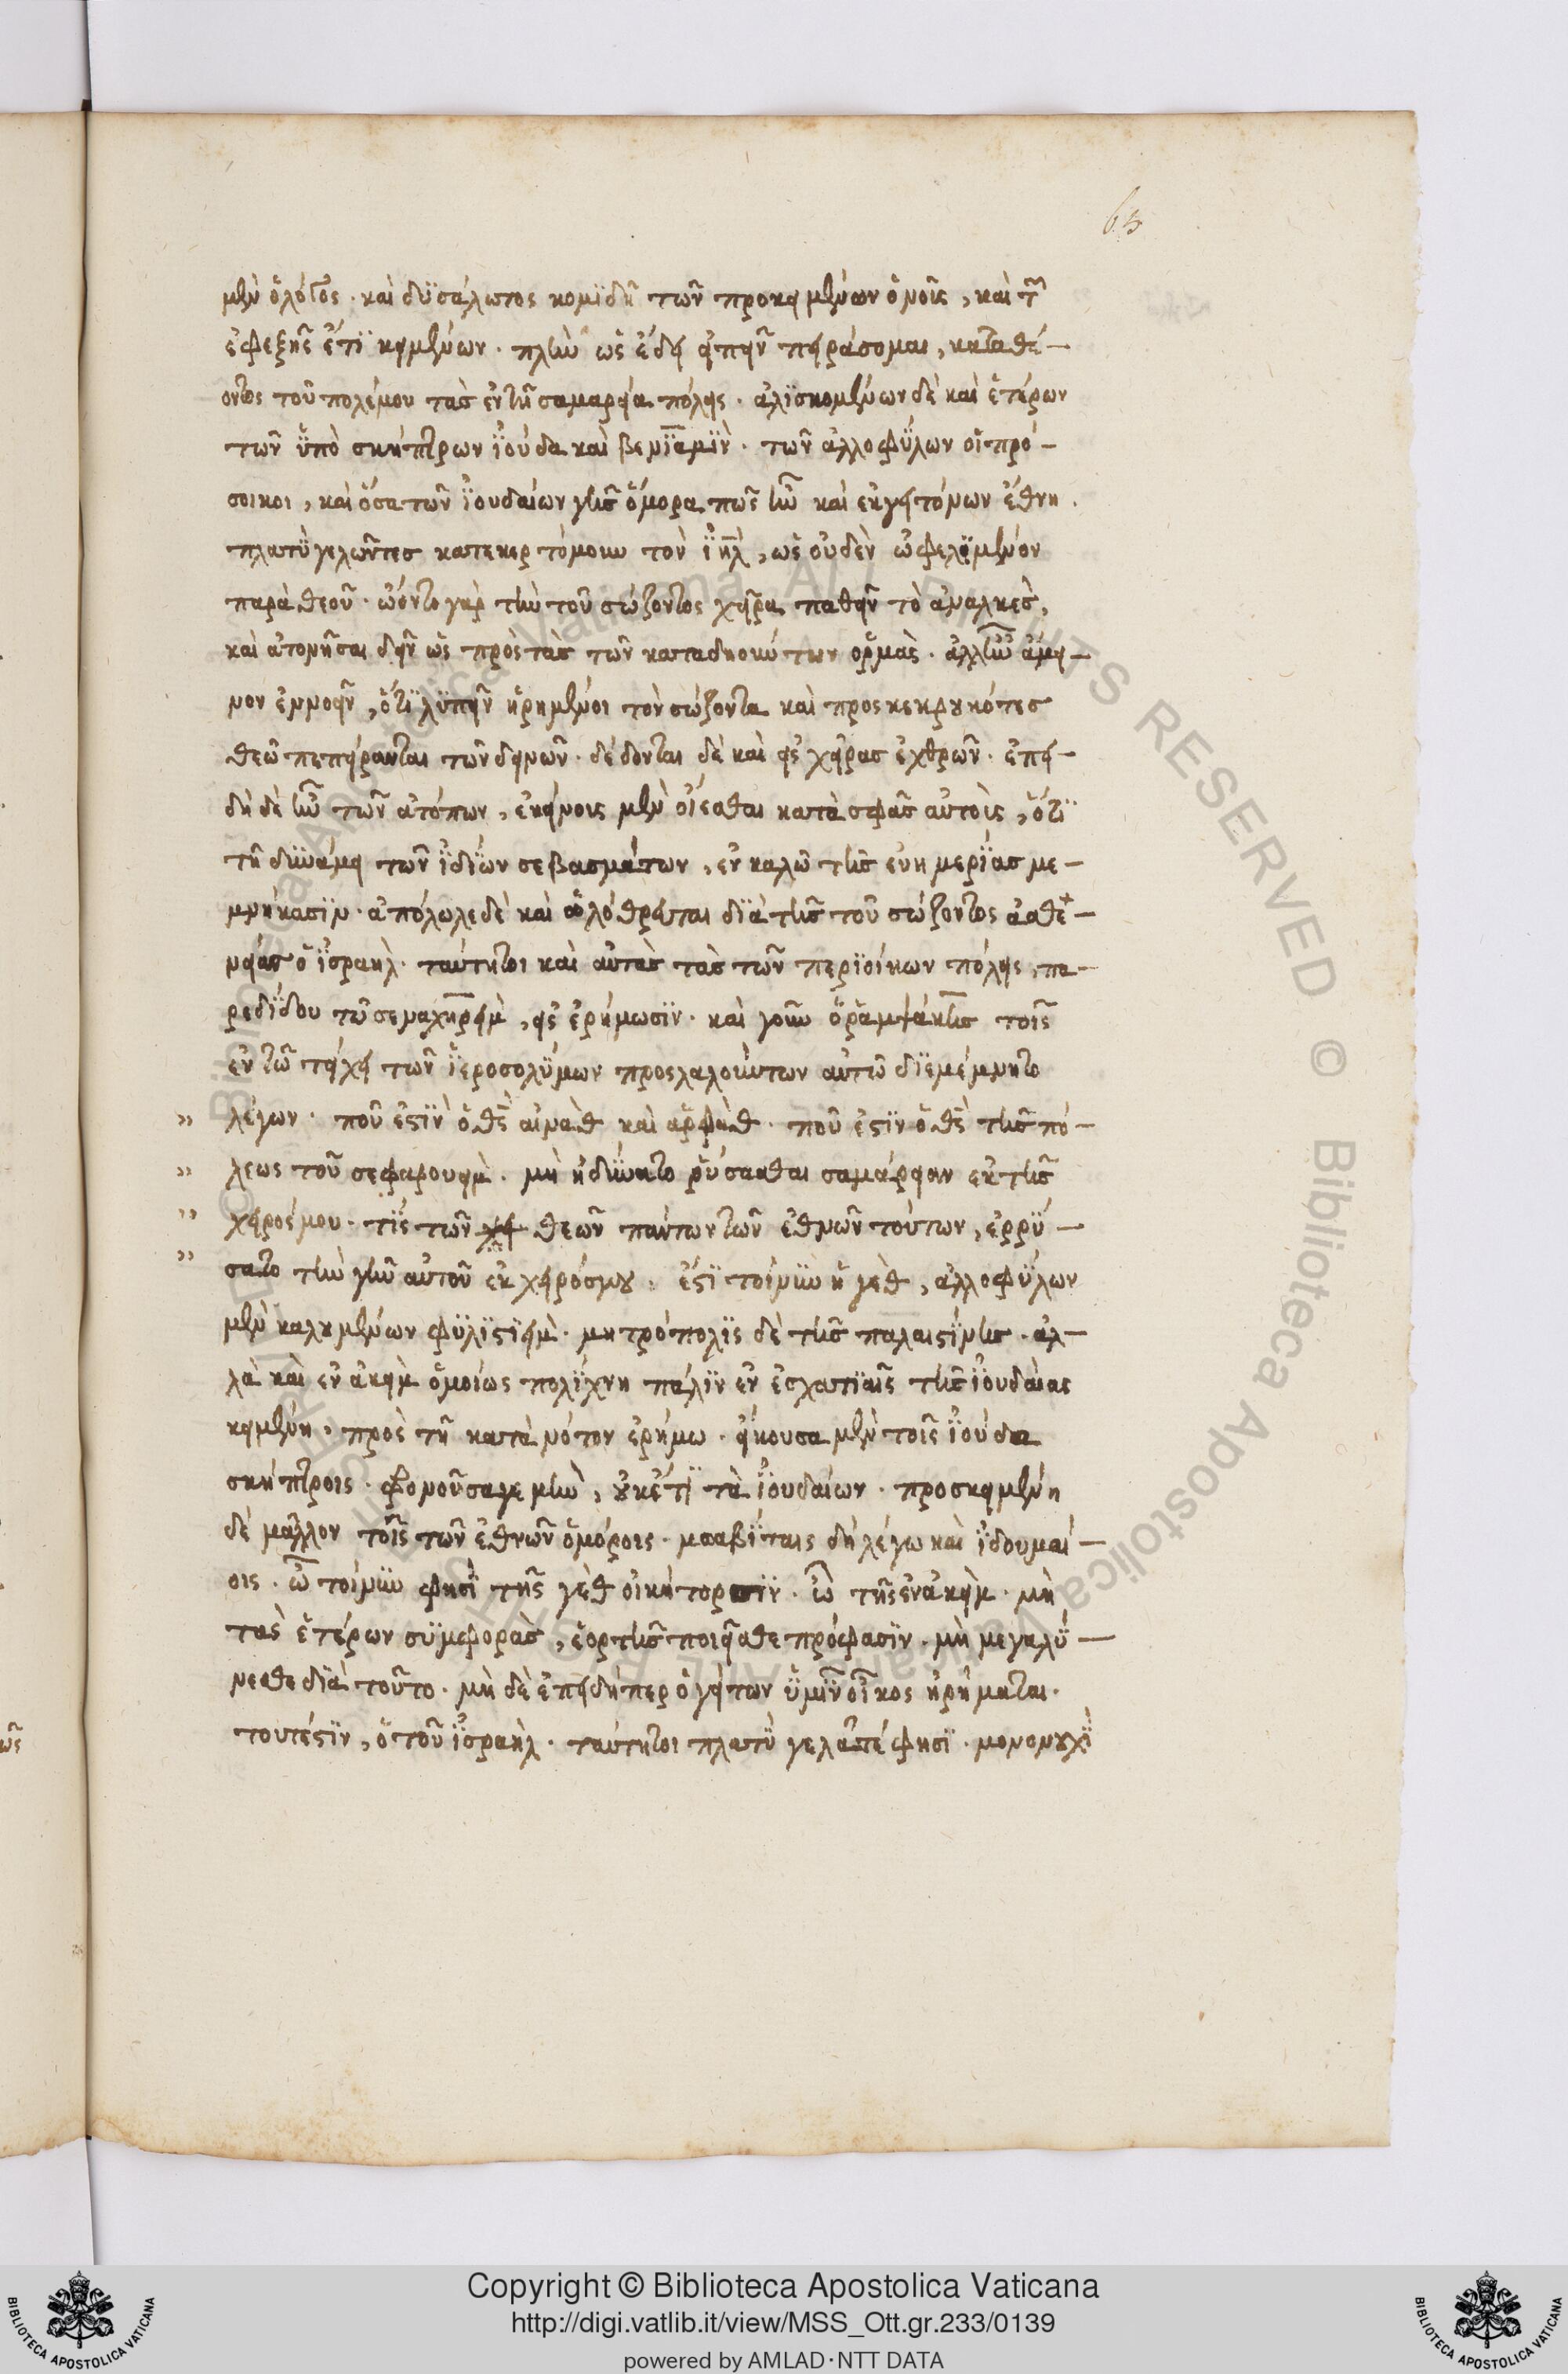 65
μὲν ὁ λόγος · καὶ δυσάλωτος κομιδῆ τῶν προκειμένων ὁ νοῦς, καὶ τῶν
ἐφεξῆς ἔτι κειμένων · πλὴν ὡς ἔδει εἰπεῖν πειράσομαι, καταθέ-
οντος τοῦ πολέμου τὰς ἐν τῆ σαμαρεία πόλεις · ἁλισκομένων δὲ καὶ ἑτέρων
τῶν ὑπὸ σκήπτρων ἰούδα καὶ βενιαμὶν · τῶν ἀλλοφύλων οἱ πρό-
σοικοι, καὶ ὅσα τῶν ἰουδαίων γῆς ὅμορα πως ἦν καὶ ἐκ γειτόνων ἔθνη ·
πλατὺ γελῶντες κατεκερτόμουν τὸν ἰηλ, ὡς οὐδὲν ὠφελημένον
παρὰ θεοῦ · ὤοντο γὰρ τὴν τοῦ σώζοντος χεῖρα παθεῖν τὸ ἀναλκὲς,
καὶ ἀτονῆσαι δεῖν ὡς πρὸς τὰς τῶν καταδηούντων ὁρμὰς · ἀλλ' ἦν ἄμει-
νον ἐννοεῖν, ὅτι λυπεῖν ἡρημένοι τὸν σώζοντα καὶ προσκεκρουκότες
θεῶ πεπείρανται τῶν δεινῶν · δέδονται δὲ καὶ εἰς χεῖρας ἐχθρῶν · ἐπει-
δὴ δὲ ἦν τῶν ἀτόπων, ἐκείνοις μὲν οἴεσθαι κατὰ σφᾶς αὐτοὺς, ὅτι
τῆ δυνάμει τῶν ἰδίων σεβασμάτων, ἐν καλῶ τῆς εὐημερίας με-
μενήκασιν · ἀπόλωλε δὲ καὶ ὀλόθρευται διὰ τῆς τοῦ σώζοντος ἀσθε-
νείας ὁ ἰσραὴλ · ταύτητοι καὶ αὐτὰς τὰς τῶν περιοίκων πόλεις, πα-
ρεδίδου τῶ σεναχηρεὶμ, εἰς ἐρήμωσιν · καὶ γοῦν ὁ ῥαμψάκης τοῖς
ἐν τῶ τείχει τῶν ἱεροσολύμων προσλαλούντων αὐτῶ διεμέμνητο
» λέγων · ποῦ ἐστὶν ὁ θς αἰμὰθ καὶ ἀρφὰθ · ποῦ ἐστὶν ὁ θς τῆς πό-
» λεως τοῦ σεφαρουεὶμ · μὴ ἠδύνατο ῥύσασθαι σαμάρειαν ἐκ τῆς
» χειρός μου · τίς τῶν θεῶν πάντων τῶν ἐθνῶν τούτων, ἐρρύ-
» σατο τὴν γῆν αὐτοῦ ἐκ χειρός μου · ἔστι τοίνυν ἡ γὲθ, ἀλλοφύλων
μὲν καλουμένων φυλιστιεὶμ · μητρόπολις δὲ τῆς παλαιστίνης · ἀλ-
λὰ καὶ ἐν ἀκεὶμ ὁμοίως πολίχνη πάλιν ἐν ἐσχατιαῖς τῆς ἰουδαίας
κειμένη, πρὸς τῆ κατὰ νότον ἐρήμω · εἴκουσα μὲν τοῖς ἰούδα
σκήπτροις · φονοῦσα γε μὴν, οὐκέτι τὰ ἰουδαίων · προσκειμένη
δὲ μᾶλλον τοῖς τῶν ἐθνῶν ὁμόροις · μωαβίταις δὴ λέγω καὶ ἰδουμαί-
οις · ὦ τοίνυν φησὶ τῆς γὲθ οἰκήτορσιν · ὦ τῆς ἐν ἀκεὶμ · μὴ
τὰς ἑτέρων συμφορὰς, ἑορτῆς ποιεῖσθε πρόφασιν · μὴ μεγαλύ-
νεσθε διὰ τοῦτο · μὴ δὲ ἐπειδήπερ ὁ γείτων ὑμῖν οἶκος ἠρήμηται ·
τουτέστιν, ὁ τοῦ ἰσραὴλ · ταύτητοι πλατὺ γελᾶτέ φησι · μονονουχὶ
Copyright © Biblioteca Apostolica Vaticana
http://digi.vatlib.it/view/MSS_Ott.gr.233/0139
powered by AMLAD·NTT DATA